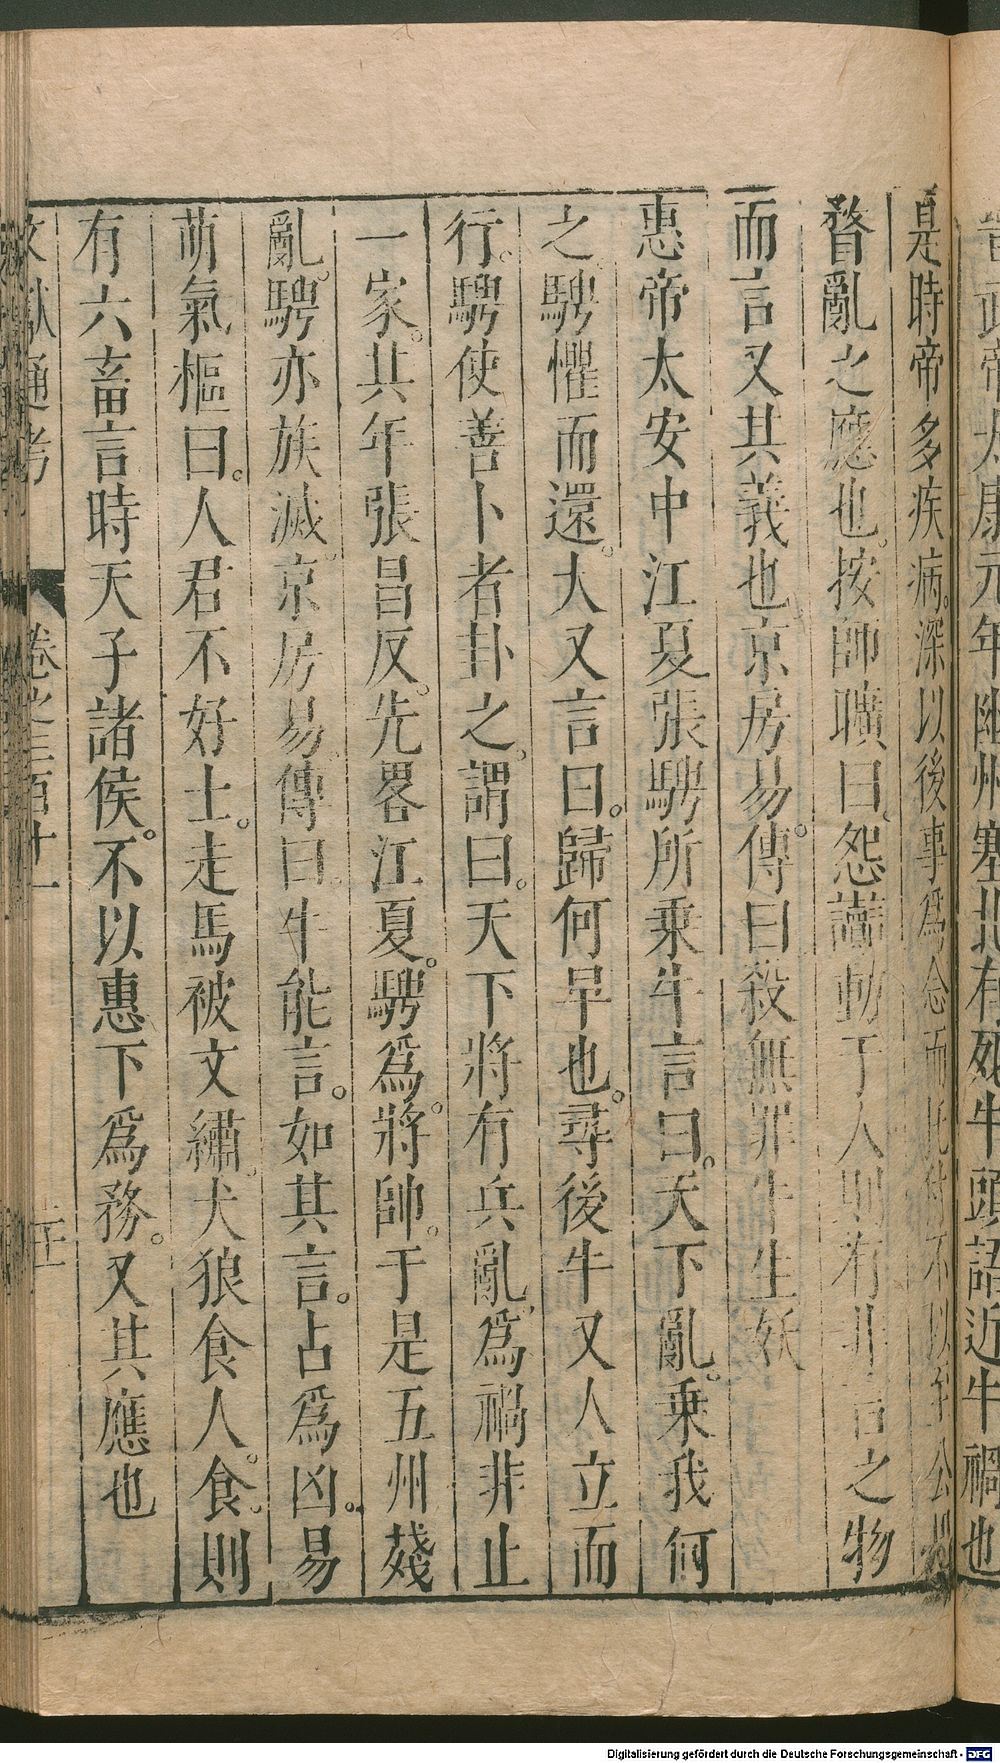 晉武帝太康元年幽州塞北有死牛頭語近牛禍也
是時帝多疾病深以後事爲念而托付不以至公思
瞀亂之應也按師曠曰怨讟動于人則有非言之物
而言又其義也京房易傳曰殺無罪牛生妖
惠帝太安中江夏張騁所乘牛言曰天下亂乘我何
之騁懼而還犬又言曰歸何早也尋後牛又人立而
行騁使善卜者卦之謂曰天下將有兵亂爲禍非止
一家其年張昌反先畧江夏騁爲將帥于是五州殘
亂騁亦族滅京房易傳曰牛能言如其言占爲凶易
萌氣樞曰人君不好士走馬被文繡犬狼食人食則
有六畜言時天子諸侯不以惠下爲務又其應也
文獻通考 卷之三百十一
Digitalisierung gefördert durch die Deutsche Forschungsgemeinschaft - DFG